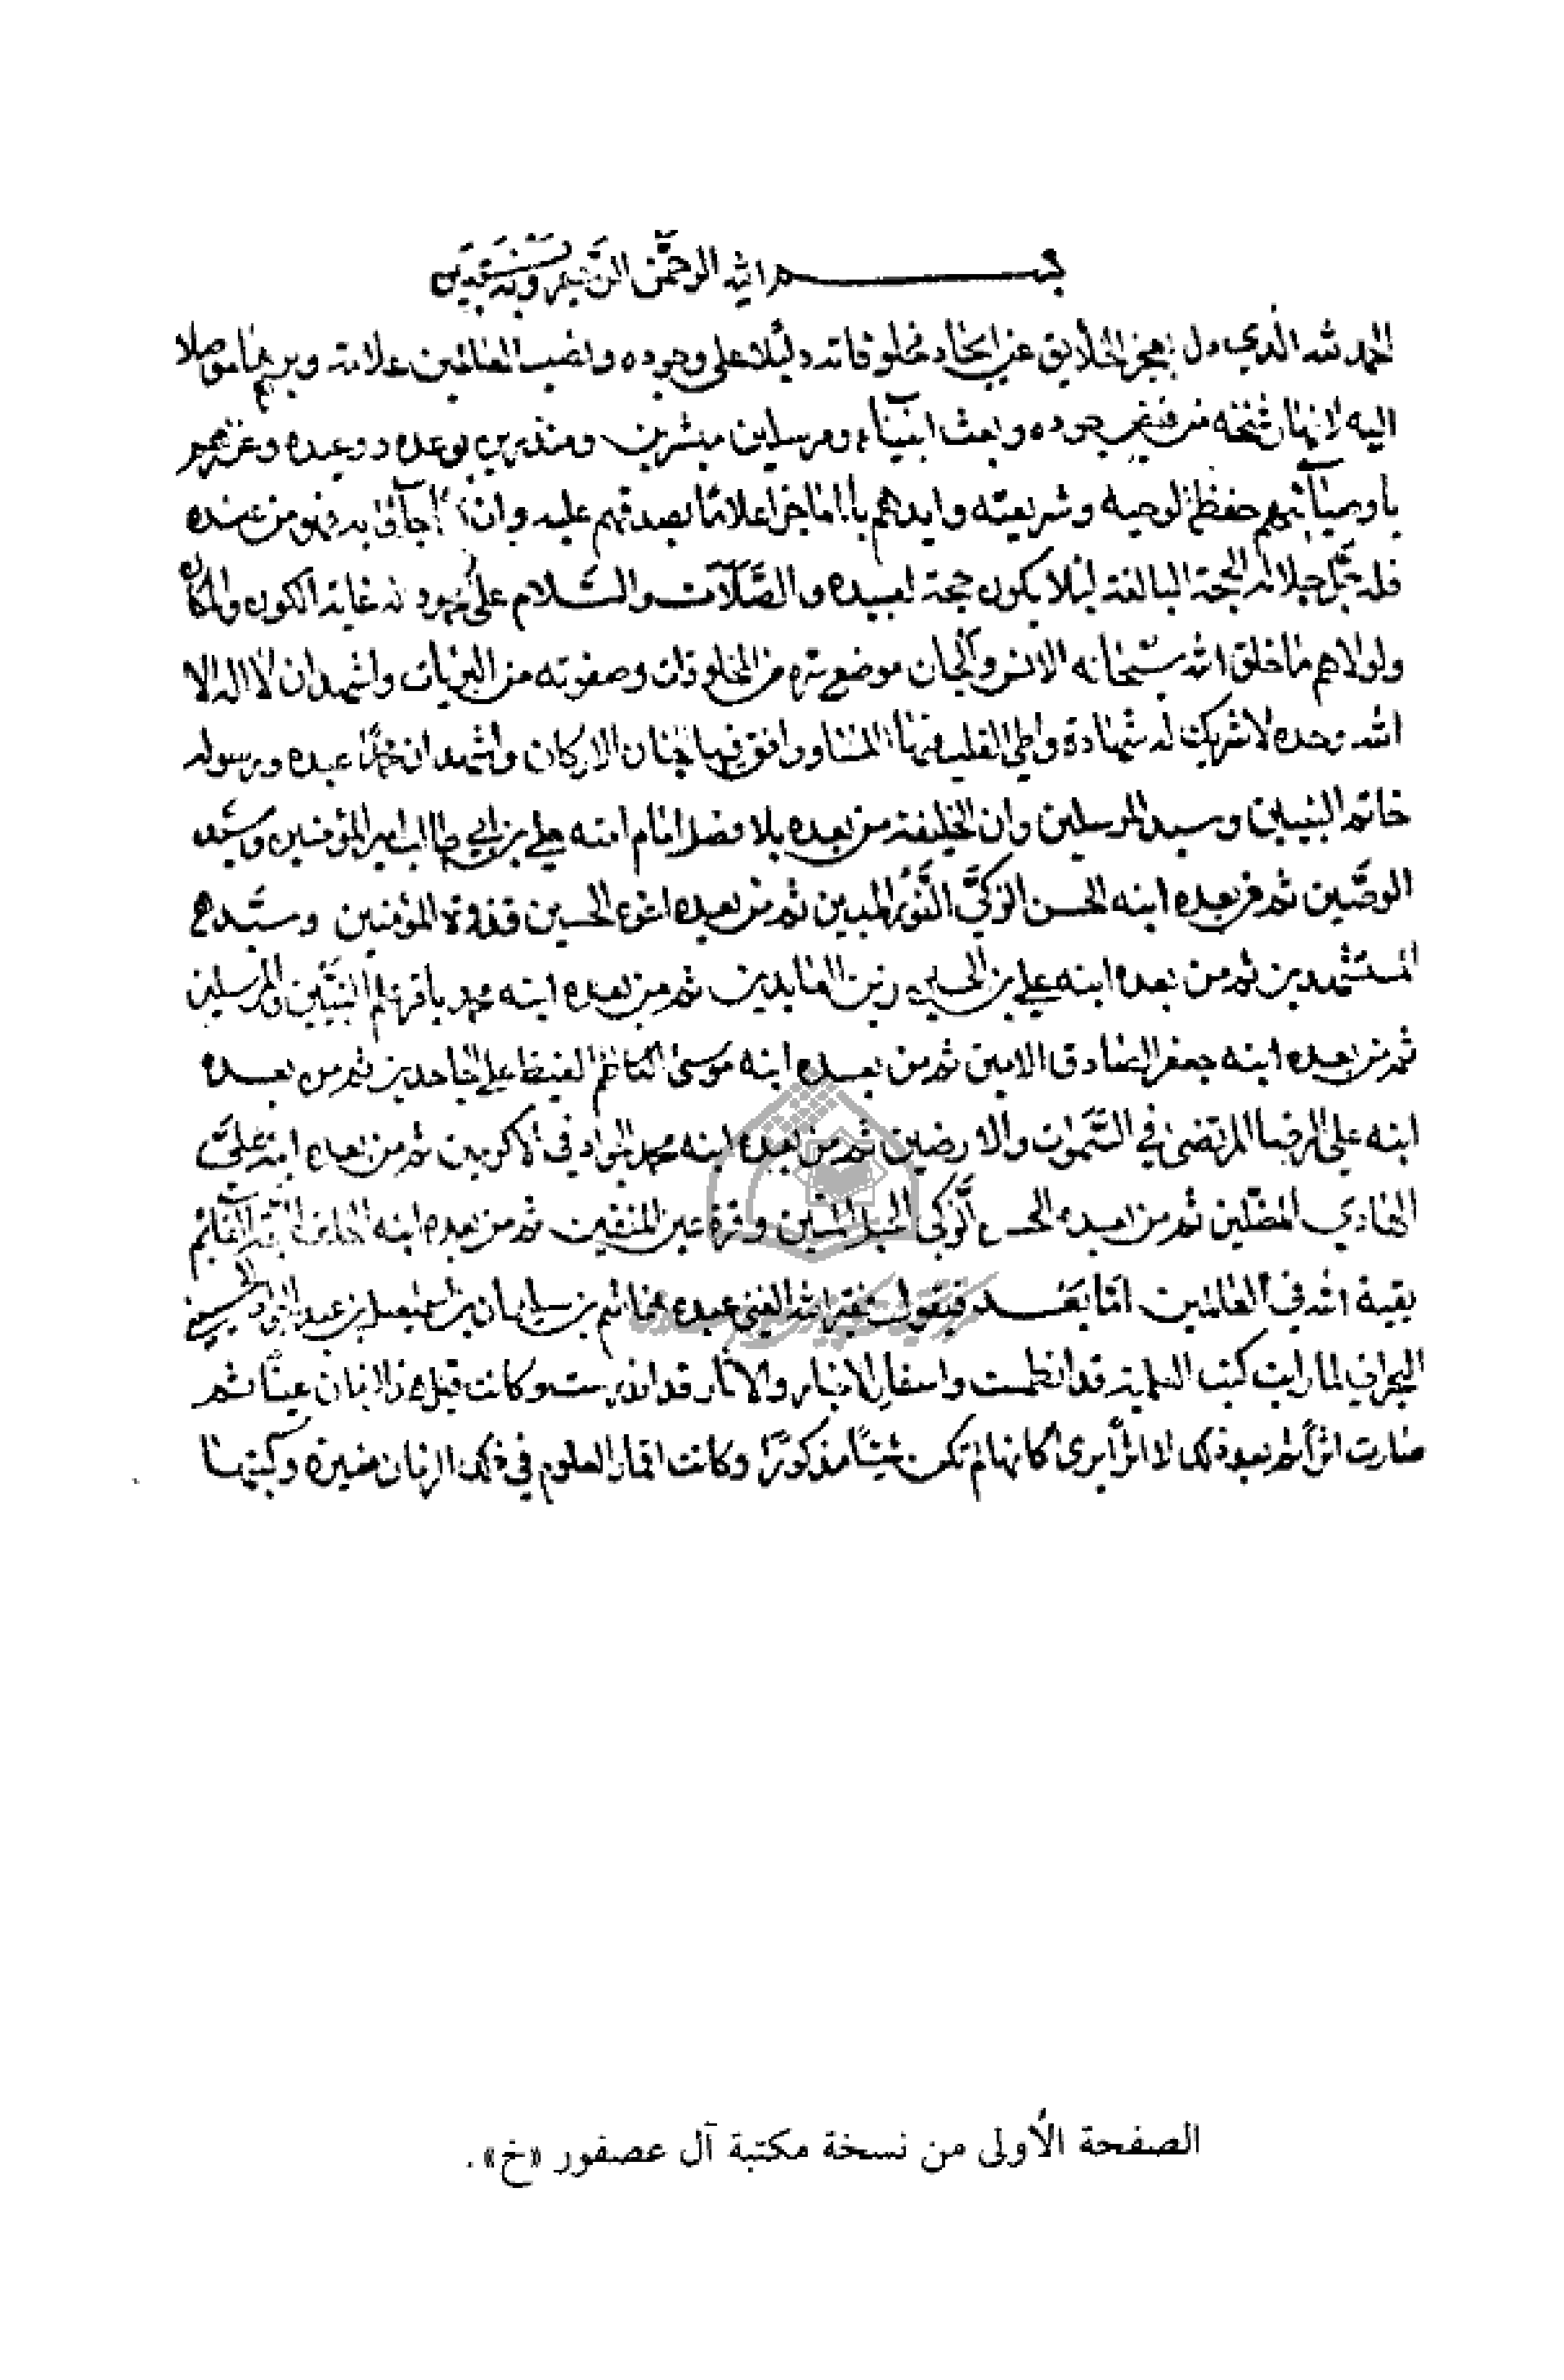 بسم الله الرحمن الرحيم وبه نستعين
الحمد لله الذي دل بعجز الخلايق عن ايجاد مخلوقاته دليلا على وجوده وانصب العالمين علامة وبرهانا موصلا
اليه لانها رشحة من فيض جوده وبعث انبياء ومرسلين مبشرين ومنذرين بوعده ووعيده وعززهم
باوصيائهم حفظة لوحيه وشريعته وايدهم بالمعاجز اعلاما بصدقهم عليه وان ما جاؤا به فهو من عنده
فله جل جلاله الحجة البالغة لئلا يكون حجة لعبيده والصلات والسلام على غاية الكون والمكان
ولولاهم ما خلق الله سبحانه الانس والجان موضع سره من المخلوقات وصفوته من البريات واشهد ان لا اله الا
الله وحده لا شريك له شهادة واطى القلب فيها اللسان ووافق فيها الجنان الاركان واشهد ان محمدا عبده ورسوله
خاتم النبيين وسيد المرسلين وان الخليفة من بعده بلا فصل امام امته علي بن ابي طالب امير المؤمنين وسيد
الوصيين ثم من بعده ابنه الحسن الزكي النور المبين ثم من بعده اخوه الحسين قدوة المؤمنين وسيدهم
المستشهدين ثم من بعده ابنه علي بن الحسين زين العابدين ثم من بعده ابنه محمد باقر علم النبيين والمرسلين
ثم من بعده ابنه جعفر الصادق الامين ثم من بعده ابنه موسى الكاظم الغيظ على الجاحدين ثم من بعده
ابنه علي الرضا المرتضى في السموات والارضين ثم من بعده ابنه محمد الجواد في الاكرمين ثم من بعده ابنه علي
الهادي المضلين ثم من بعده الحسن الزكي الحبل المتين وقرة عين المتقين ثم من بعده ابنه الخلف القائم
بقية الله في العالمين اما بعد فيقول فقير الله الغني عبده هاشم بن سليمان بن اسمعيل بن عبد الجواد الحسيني
البحراني لما رايت كتب العلمية قد انطمست واسفار الاخبار والاثار قد اندرست وكانت قبل هذا الزمان عينا ثم
صارت اثرا ثم بعد ذلك لا اثرا يرى كانها لم تكن شيئا مذكورا وكانت اقمار العلوم في ذلك الزمان منيرة وكتبها
الصفحة الأولى من نسخة مكتبة آل عصفور «خ».